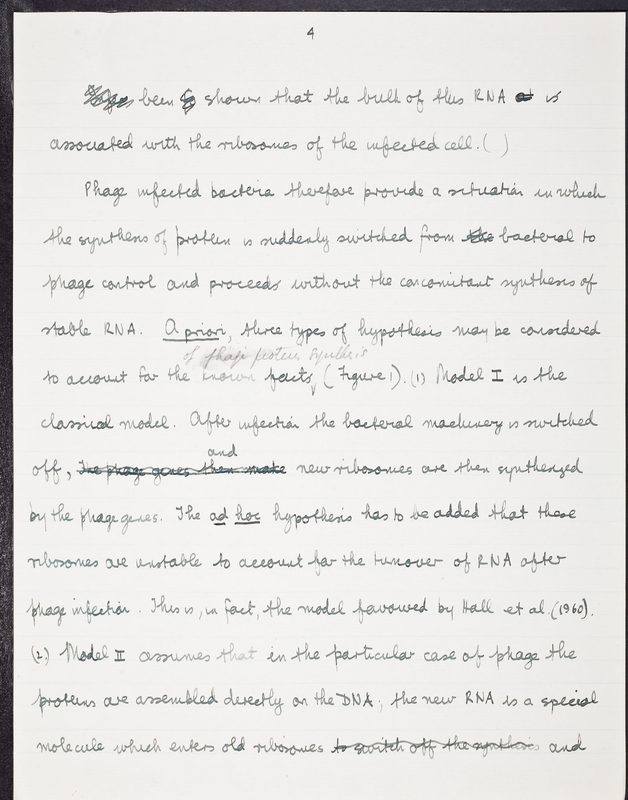 4
been shown that the bulk of this RNA is
associated with the ribosomes of the infected cell. ( )
Phage infected bacteria therefore provide a situation in which
the synthesis of protein is suddenly switched from the bacterial to
phage control and proceeds without the concomitant synthesis of
stable RNA. A priori, three types of hypothesis may be considered
of phage protein synthesis
to account for the known facts, (Figure 1). (1) Model I is the
classical model. After infection the bacterial machinery is switched
and
off, The phage genes then make new ribosomes are then synthesized
by the phage genes. The ad hoc hypothesis has to be added that these
ribosomes are unstable to account for the turnover of RNA after
phage infection. This is, in fact, the model favoured by Hall et al. (1960).
(2) Model II assumes that in the particular case of phage the
proteins are assembled directly on the DNA; the new RNA is a special
molecule which enters old ribosomes to switch off the synthesis and